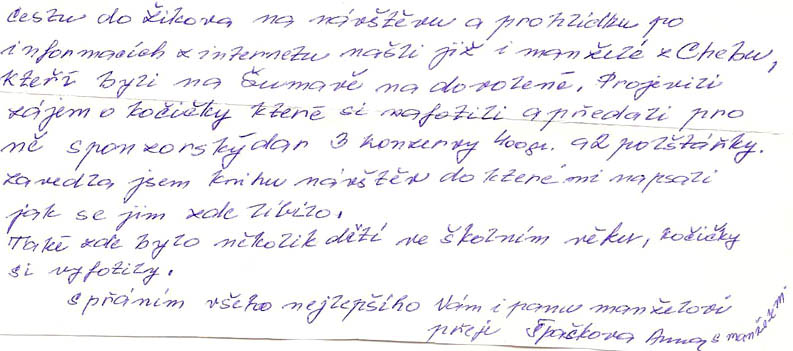 cestu do Žíkova na návštěvu a prohlídku po
informacích z internetu našli již i manželé z Chebu,
kteří byli na Šumavě na dovolené. Projevili
zájem o kočičky které si nafotili a předali pro
ně sponzorský dar 3 konzervy 400gr. a 2 polštářky.
zavedla jsem knihu návštěv do které mi napsali
jak se jim zde líbilo.
Také zde bylo několik dětí ve školním věku, kočičky
si vyfotily.
s přáním všeho nejlepšího Vám i panu manželovi
přeje Špačková Anna s manželem.